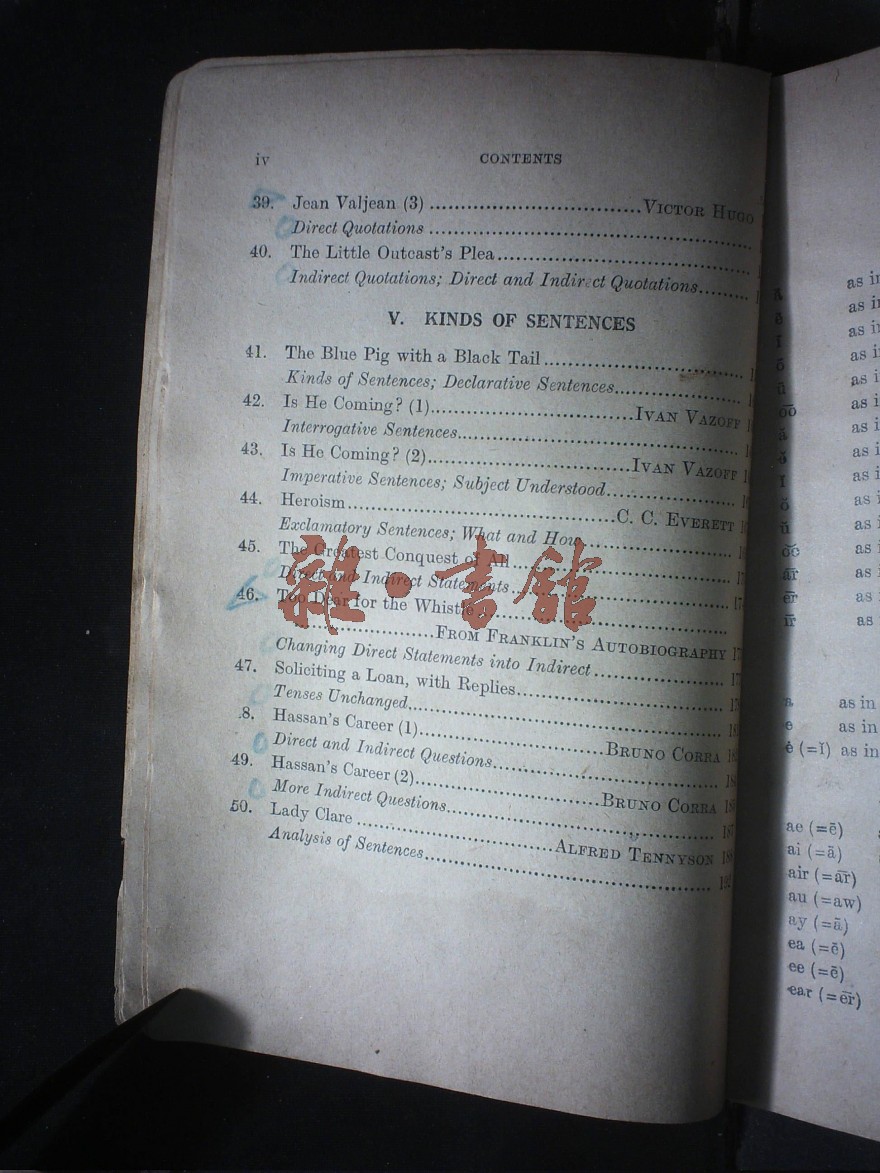 iv CONTENTS
39. Jean Valjean (3) ........ VICTOR HUGO
Direct Quotations ........
40. The Little Outcast's Plea ........
Indirect Quotations; Direct and Indirect Quotations ........
V. KINDS OF SENTENCES
41. The Blue Pig with a Black Tail ........
Kinds of Sentences; Declarative Sentences ........
42. Is He Coming? (1) ........ IVAN VAZOFF
Interrogative Sentences ........
43. Is He Coming? (2) ........ IVAN VAZOFF
Imperative Sentences; Subject Understood ........
44. Heroism ........ C. C. EVERETT
Exclamatory Sentences; What and How ........
45. The Greatest Conquest of All ........
Direct and Indirect Statements ........
46. Too Dear for the Whistle ........
........ FROM FRANKLIN'S AUTOBIOGRAPHY
Changing Direct Statements into Indirect ........
47. Soliciting a Loan, with Replies ........
Tenses Unchanged ........
8. Hassan's Career (1) ........ BRUNO CORRA
Direct and Indirect Questions ........
49. Hassan's Career (2) ........ BRUNO CORRA
More Indirect Questions ........ 187
50. Lady Clare ........ ALFRED TENNYSON
Analysis of Sentences ........
雜·書館
as in
as in
as i
as i
as i
as i
as i
as i
as i
as i
as i
as i
as i
as i
as
a as in
e as in
ė (=ĭ) as in
ae (=ē)
ai (=ā)
air (=ār)
au (=aw)
ay (=ā)
ea (=ē)
ee (=ē)
ear (=ēr)